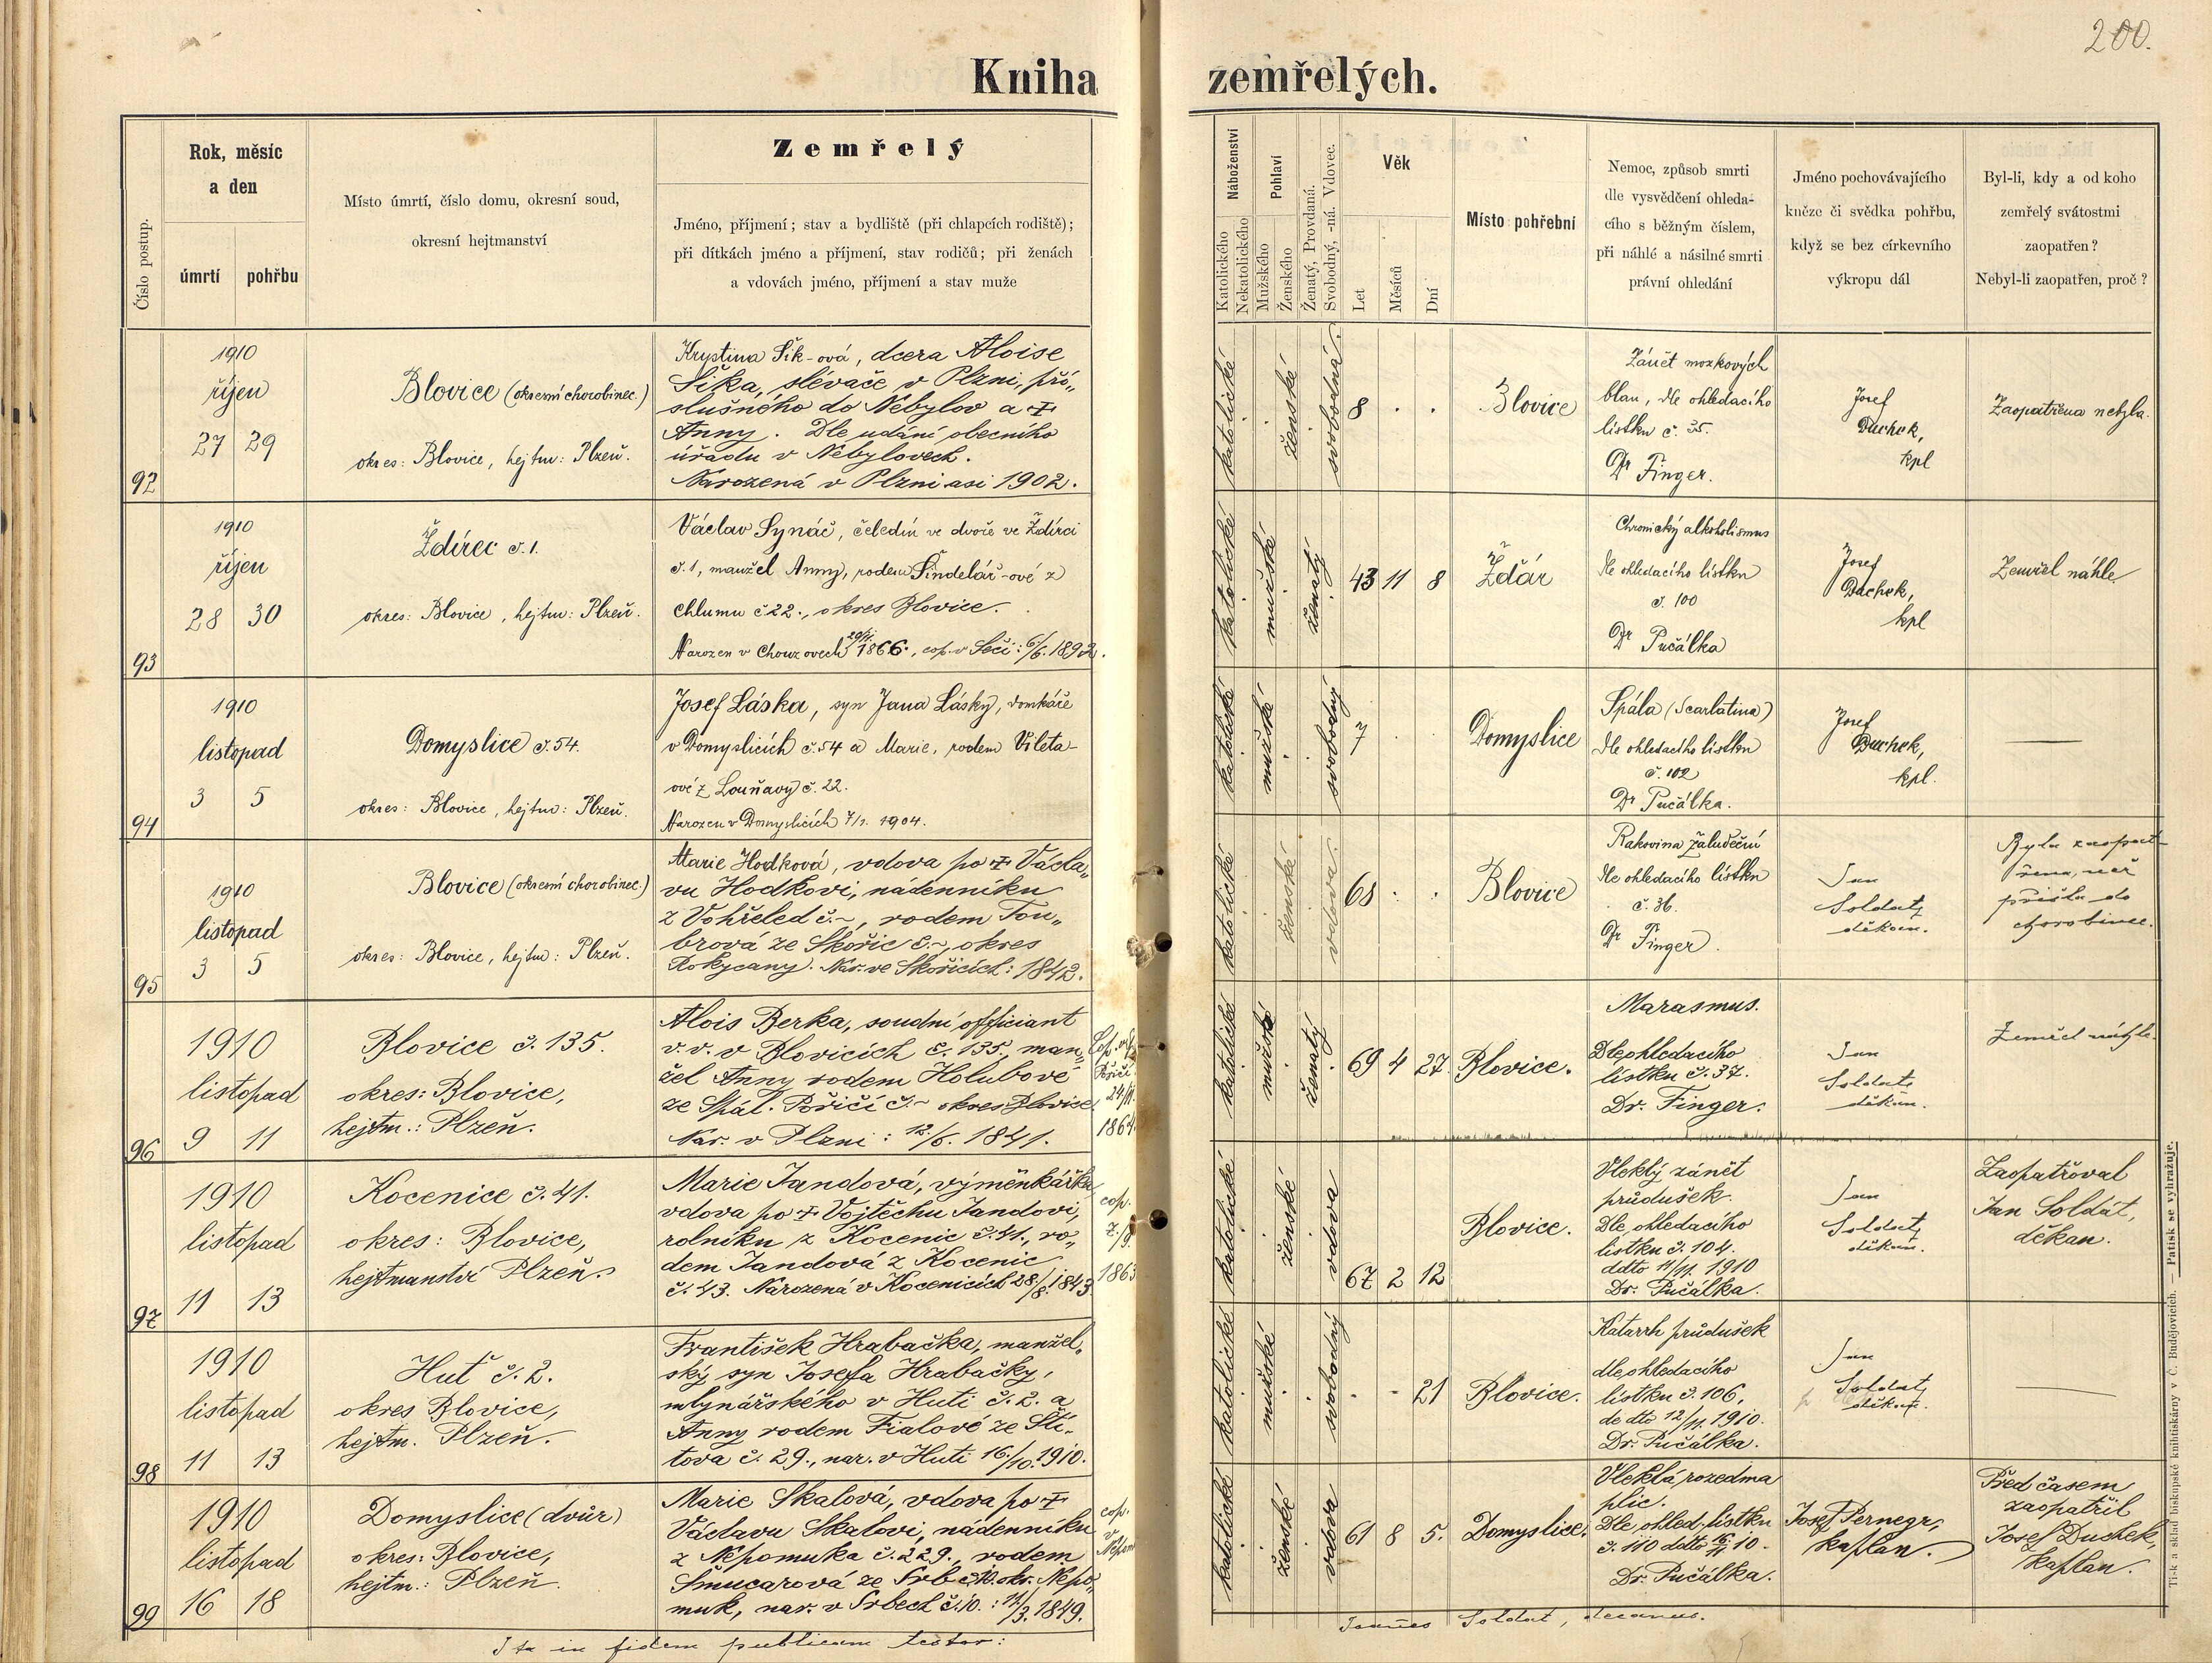 200.
Kniha zemřelých.
Číslo postup.
Rok, měsíc
a den
úmrtí
pohřbu
Místo úmrtí, číslo domu, okresní soud,
okresní hejtmanství
Zemřelý
Jméno, příjmení; stav a bydliště (při chlapcích rodiště);
při dítkách jméno a příjmení, stav rodičů; při ženách
a vdovách jméno, příjmení a stav muže
Náboženství
Katolického
Nekatolického
Pohlaví
Mužského
Ženského
Ženatý, Provdaná.
Svobodný, -ná. Vdovec.
Věk
Let
Měsíců
Dní
Místo pohřební
Nemoc, způsob smrti
dle vysvědčení ohleda-
cího s běžným číslem,
při náhlé a násilné smrti
právní ohledání
Jméno pochovávajícího
kněze či svědka pohřbu,
když se bez církevního
výkropu dál
Byl-li, kdy a od koho
zemřelý svátostmi
zaopatřen?
Nebyl-li zaopatřen, proč?
92
1910
říjen
27 29
Blovice (okresní chorobinec.)
okres: Blovice, hejtm: Plzeň.
Krystina Šik-ová, dcera Aloise
Šika, slévače v Plzni, pří„
slušného do Nebylov a †
Anny. Dle udání obecního
úřadu v Nebylovech.
Narozená v Plzni asi 1902.
katolické
ženské
svobodná.
8 . .
Blovice
Zánět mozkových
blan, dle ohledacího
lístku č. 35.
Dr Finger.
Josef
Duchek,
kpl
Zaopatřena nebyla.
93
1910
říjen
28 30
Ždírec č. 1.
okres: Blovice, hejtm: Plzeň.
Václav Synáč, čeledín ve dvoře ve Ždírci
č. 1, manžel Anny, rodem Šindelář-ové z
Chlumu č 22., okres Blovice.
Narozen v Chouzovech 1866., cop. v Seči: 6/6. 1892.
katolické
mužské
ženatý
43 11 8
Ždár
Chronický alkoholismus
dle ohledacího lístku
č. 100
Dr Pučálka
Josef
Duchek,
kpl
Zemřel náhle
94
1910
listopad
3 5
Domyslice č. 54.
okres: Blovice, hejtm: Plzeň.
Josef Láska, syn Jana Lásky, domkáře
v Domyslicích č. 54 a Marie, rodem Vileta-
ové z Louňavy č. 22.
Narozen v Domyslicích 7/1. 1904.
katolické
mužské
svobodný
7 . .
Domyslice
Spála (Scarlatina)
dle ohledacího lístku
č. 102
Dr Pučálka.
Josef
Duchek,
kpl.
95
1910
listopad
3 5
Blovice (okresní chorobinec.)
okres: Blovice, hejtm: Plzeň.
Marie Hodková, vdova po † Václa„
vu Hodkovi, nádenníku
z Vohřeled č. ~, rodem Tou„
brová ze Skořic č. ~, okres
Rokycany. Nar. ve Skořicích: 1842.
katolické
ženské
vdova.
68 . .
Blovice
Rakovina žaludeční
dle ohledacího lístku
č. 36.
Dr Finger.
Jan
Soldát,
děkan.
Byla zaopat-
řena, než
přišla do
chorobince.
96
1910
listopad
9 11
Blovice č. 135.
okres: Blovice,
hejtm.: Plzeň.
Alois Berka, soudní officiant
v. v. v Blovicích č. 135, man„
žel Anny rodem Holubové
ze Spál. Poříčí č. ~ okres Blovice.
Nar. v Plzni: 12./6. 1841.
Poříčí
1864.
katolické
mužské
ženatý
69 4 27.
Blovice.
Marasmus.
Dle ohledacího
lístku č. 37.
Dr. Finger.
Jan
Soldát,
děkan.
Zemřel náhle
97
1910
listopad
11 13
Kocenice č. 41.
okres: Blovice,
hejtmanství Plzeň.
Marie Jandová, výměnkářka,
vdova po † Vojtěchu Jandovi,
rolníku z Kocenic č. 41., ro„
dem Jandová z Kocenic
č. 43. Narozená v Kocenicích 28./8. 1843
cop.
1863
katolické
ženské
vdova
67 2 12
Blovice.
Vleklý zánět
průdušek.
Dle ohledacího
lístku č. 104.
ddto 11/11. 1910
Dr. Pučálka.
Jan
Soldát,
děkan.
Zaopatřoval
Jan Soldát,
děkan.
98
1910
listopad
11 13
Huť č. 2.
okres Blovice,
hejtm. Plzeň.
František Hrabačka, manžel„
ský syn Josefa Hrabačky,
mlynářského v Huti č. 2. a
Anny rodem Fialové ze Ští„
tova č. 29., nar. v Huti 16./10. 1910.
katolické
mužské
svobodný
. - 21
Blovice.
Katarrh průdušek
dle ohledacího
lístku č. 106,
de dto 12/11. 1910.
Dr. Pučálka.
Jan
Soldát,
děkan.
99
1910
listopad
16 18
Domyslice (dvůr)
okres: Blovice,
hejtm.: Plzeň.
Marie Skalová, vdova po †
Václavu Skalovi, nádenníku
z Nepomuka č. 229., rodem
Šmucarová ze Srb č. 10. okr. Nepo„
muk, nar. v Srbech č. 10.: 11/3. 1849.
cop.
v
katolické
ženské
vdova
61 8 5.
Domyslice.
Vleklá rozedma
plic.
Dle ohled. lístku
č. 110 ddto 16/11 10.
Dr. Pučálka.
Josef Pernegr,
kaplan.
Před časem
zaopatřil
Josef Duchek,
kaplan.
Ita in fidem publicam testor:
Joannes Soldat, decanus.
Tisk a sklad biskupské knihtiskárny v Č. Budějovicích. — Patisk se vyhražuje.